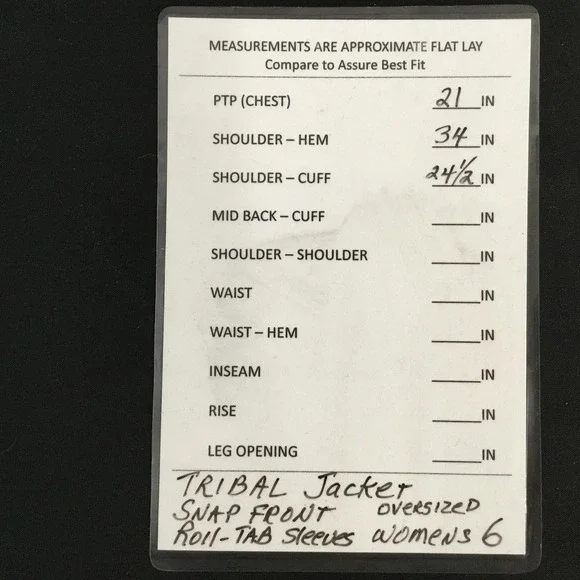 MEASUREMENTS ARE APPROXIMATE FLAT LAY
Compare to Assure Best Fit
PTP (CHEST) 21 IN
SHOULDER – HEM 34 IN
SHOULDER – CUFF 24 1/2 IN
MID BACK – CUFF ____IN
SHOULDER – SHOULDER ____IN
WAIST ____IN
WAIST – HEM ____IN
INSEAM ____IN
RISE ____IN
LEG OPENING ____IN
TRIBAL Jacket
SNAP FRONT OVERSIZED
Roll-TAB Sleeves WOMENS 6